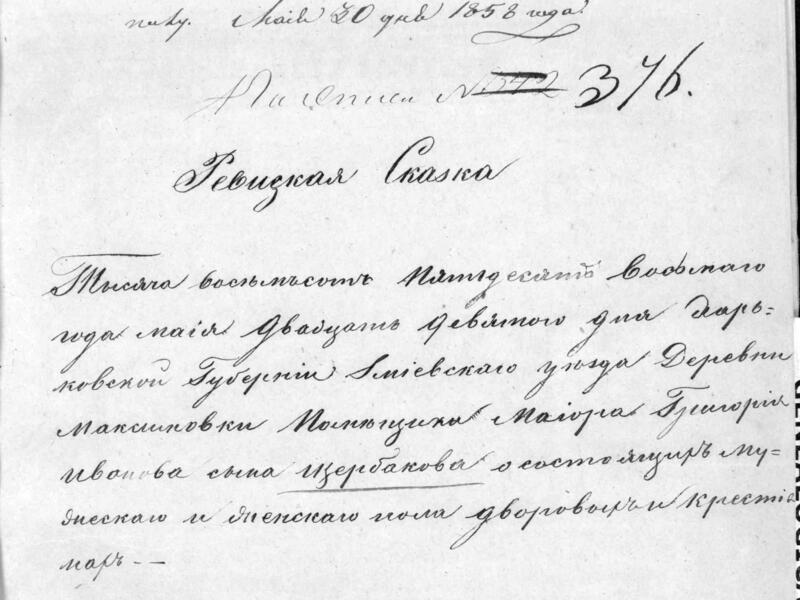 Маія 30 дня 1858 года.
По описи № 1542 376.
Ревизская Сказка
Тысяча восемьсотъ пятьдесятъ восьмаго
года маія двадцать девятого дня Харь=
ковской Губерніи Зміевскаго уѣзда Деревни
Максимовки Помѣщика Маіора Григорія
Иванова сына Щербакова о состоящихъ му=
жескаго и женскаго пола дворовыхъ и крестья
нахъ --